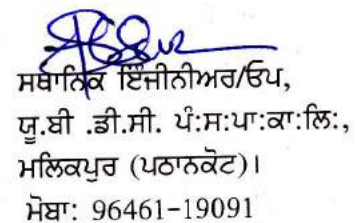 ਸਥਾਨਿਕ ਇੰਜੀਨੀਅਰ/ਓਪ,
ਯੂ.ਬੀ .ਡੀ.ਸੀ. ਪੰ:ਸ:ਪਾ:ਕਾ:ਲਿ:,
ਮਲਿਕਪੁਰ (ਪਠਾਨਕੋਟ)।
ਮੋਬਾ: 96461-19091